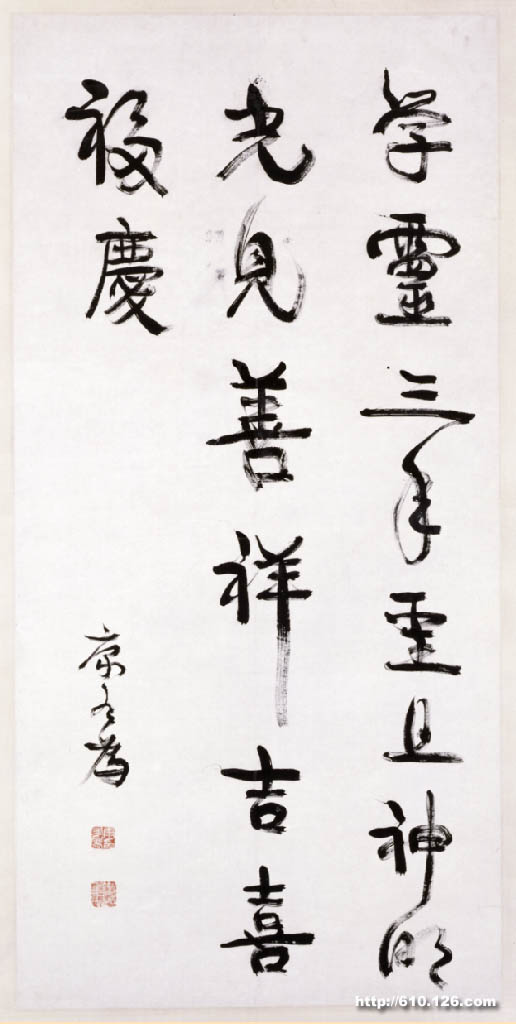 学靈三年聖且神明
光見善祥吉喜
福慶
康有為
http://610.126.com